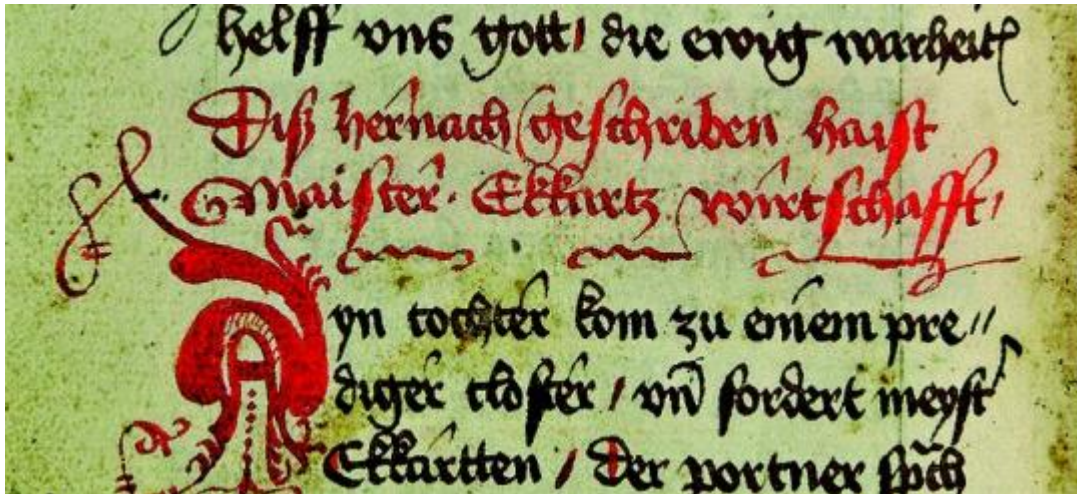 helff vns gott / die ewig warheit
Diß hernach geschriben haist
Maister · Ekkartz wirtschafft /
Ayn tochter kom zu einem pre//
diger closter / vn̄ fordert meyst'
Ekkartten / Der portner sp̄ch